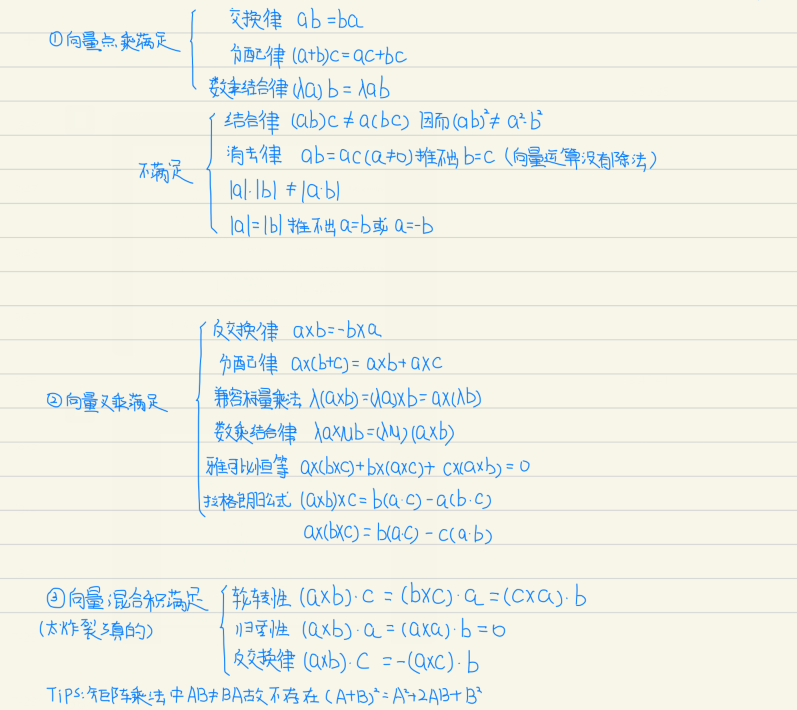 交换律 ab=ba
①向量点乘满足
分配律 (a+b)c=ac+bc
数乘结合律(λa)b=λab
结合律 (ab)c≠a(bc) 因而(ab)²≠a²·b²
消去律 ab=ac(a≠0)推不出b=c (向量运算没有除法)
不满足
|a|·|b|≠|a·b|
|a|=|b|推不出a=b或a=-b
反交换律 a×b=-b×a
分配律 a×(b+c)=a×b+a×c
②向量叉乘满足
兼容标量乘法 λ(a×b)=(λa)×b=a×(λb)
数乘结合律 λa×μb=(λμ)(a×b)
雅可比恒等 a×(b×c)+b×(a×c)+c×(a×b)=0
拉格朗日公式 (a×b)×c=b(a·c)-a(b·c)
a×(b×c)=b(a·c)-c(a·b)
③向量混合积满足
轮转性 (a×b)·c=(b×c)·a=(c×a)·b
(太炸裂了真的)
归零性 (a×b)·a=(a×a)·b=0
反交换律 (a×b)·c=-(a×c)·b
Tips:矩阵乘法中AB≠BA故不存在(A+B)²=A²+2AB+B²